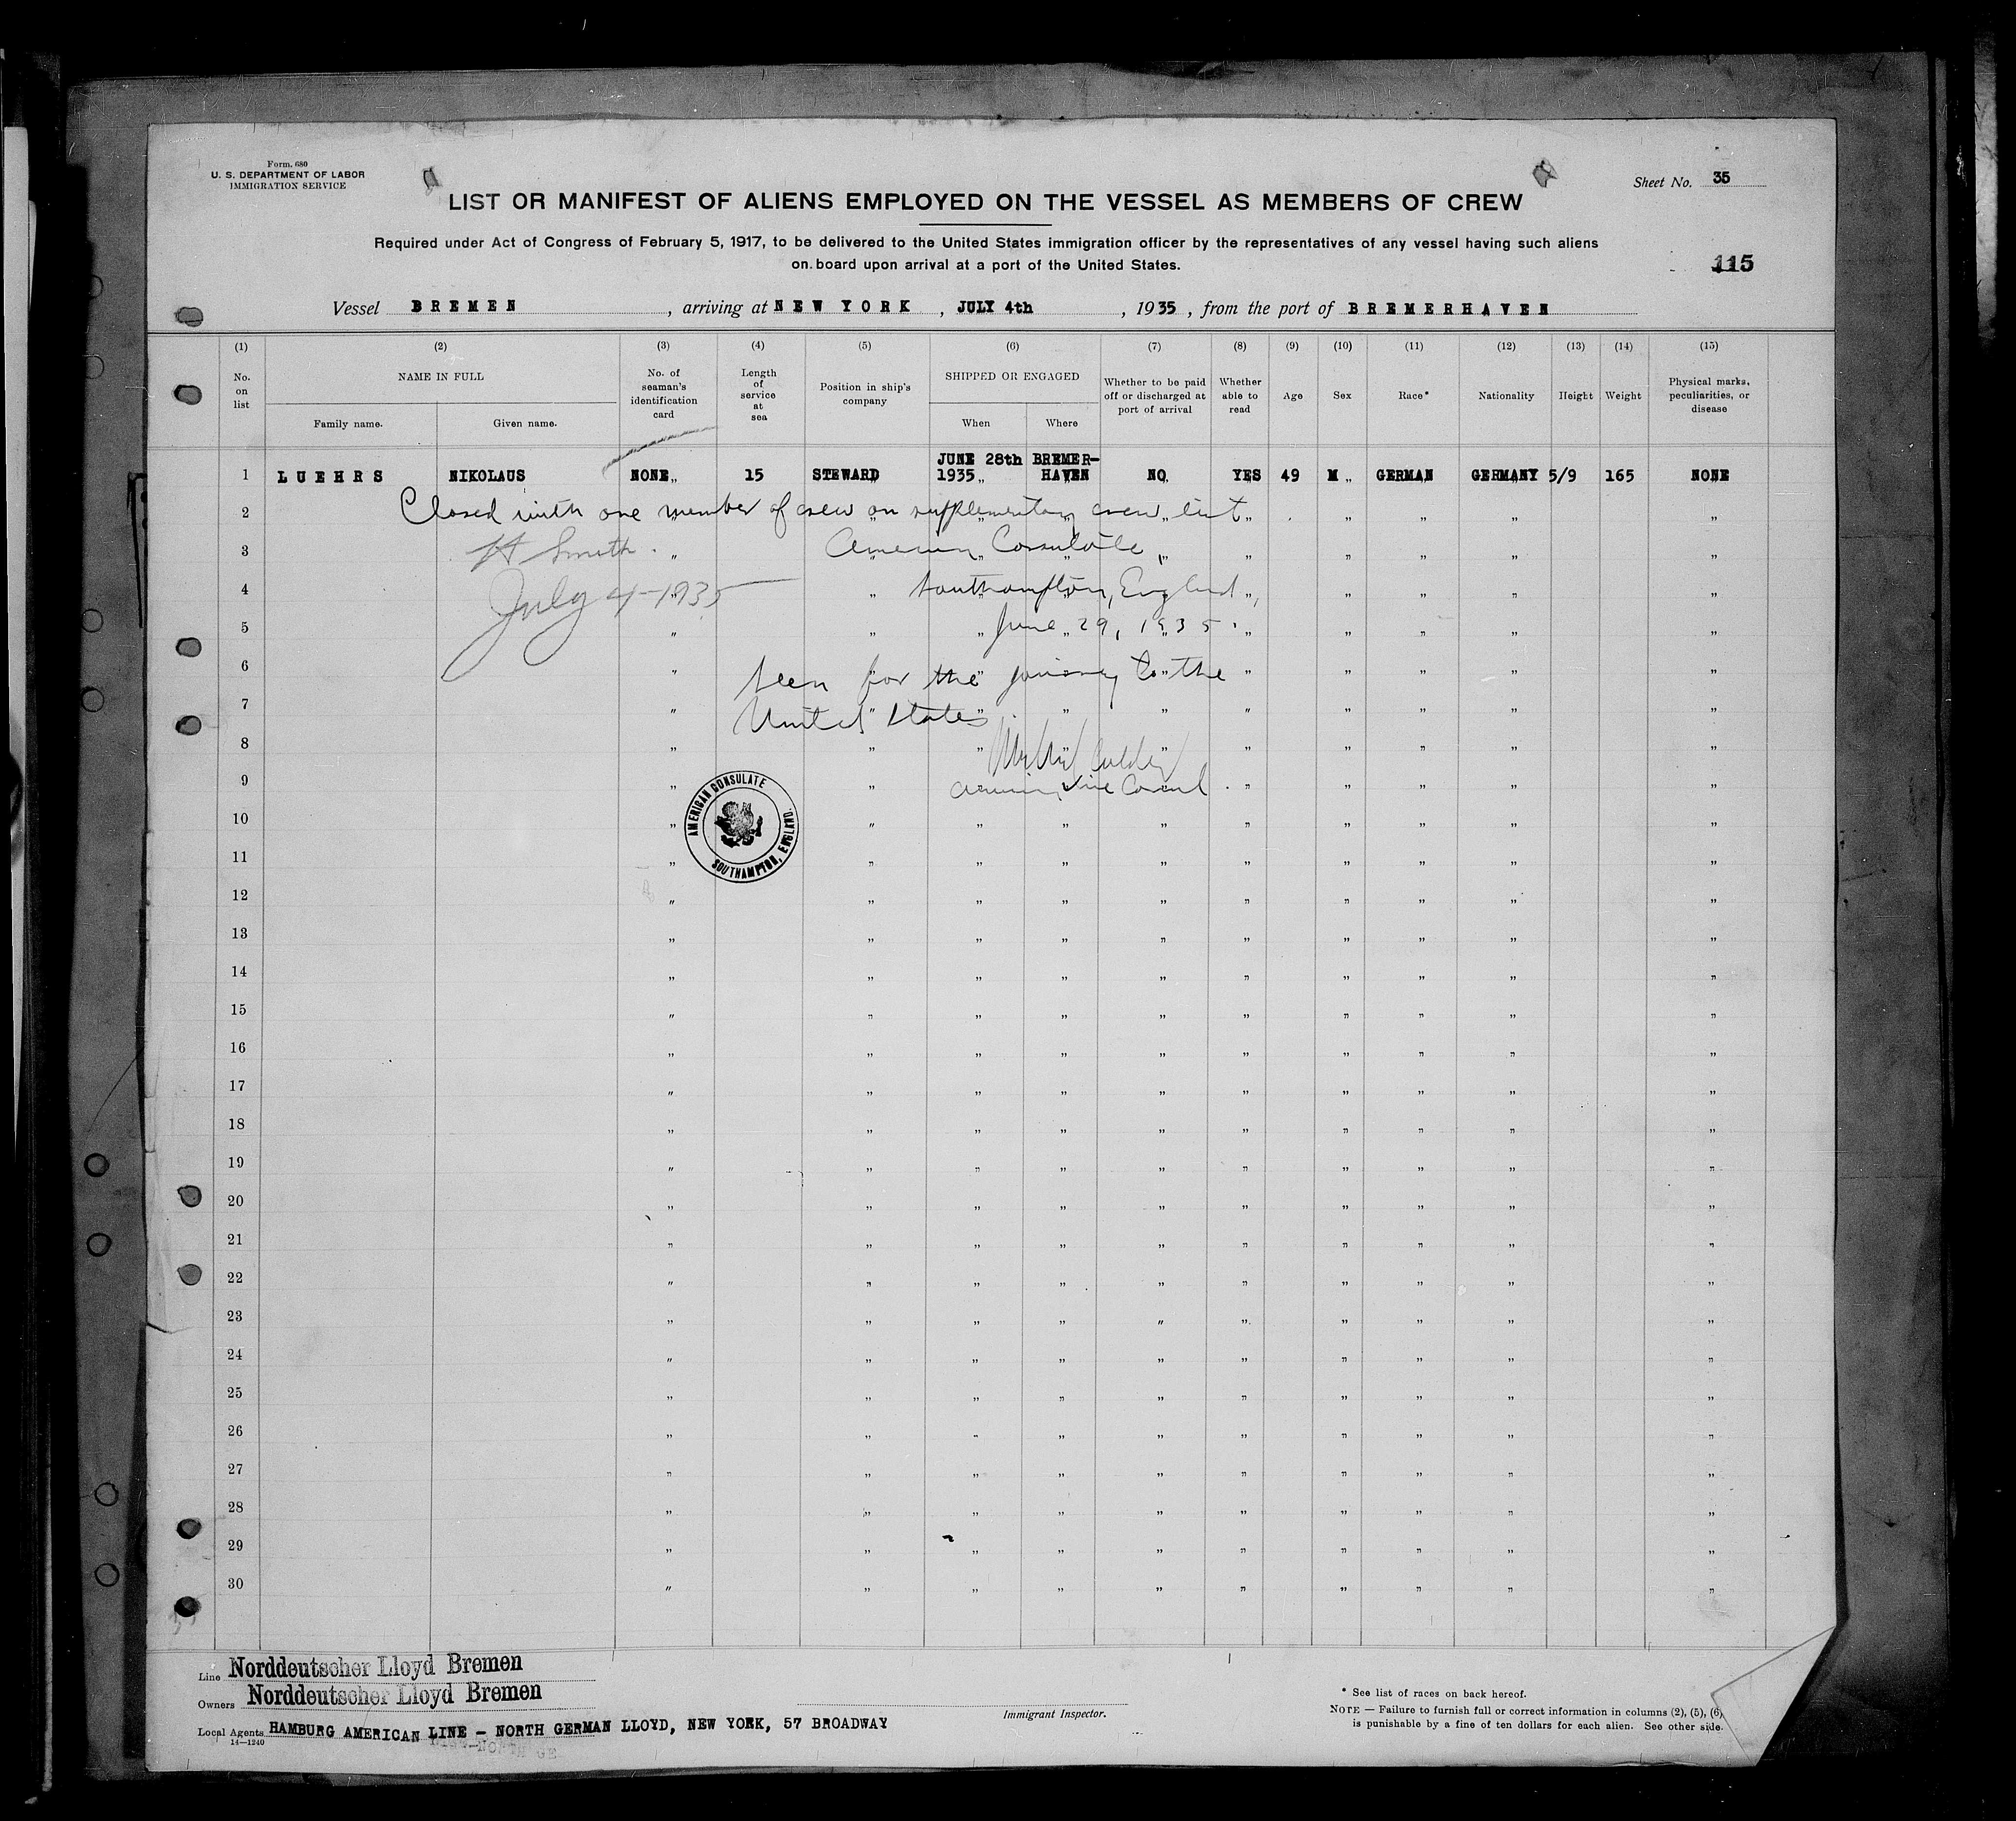 Form. 680
U. S. DEPARTMENT OF LABOR
IMMIGRATION SERVICE
Sheet No. 35
LIST OR MANIFEST OF ALIENS EMPLOYED ON THE VESSEL AS MEMBERS OF CREW
Required under Act of Congress of February 5, 1917, to be delivered to the United States immigration officer by the representatives of any vessel having such aliens
on board upon arrival at a port of the United States.
115
Vessel BREMEN, arriving at NEW YORK, JULY 4th, 1935, from the port of BREMERHAVEN
(1) (2) (3) (4) (5) (6) (7) (8) (9) (10) (11) (12) (13) (14) (15)
No. on list
NAME IN FULL
Family name. Given name.
No. of seaman's identification card
Length of service at sea
Position in ship's company
SHIPPED OR ENGAGED
When Where
Whether to be paid off or discharged at port of arrival
Whether able to read
Age
Sex
Race*
Nationality
Height
Weight
Physical marks, peculiarities, or disease
1 LUEHRS NIKOLAUS NONE 15 STEWARD JUNE 28th 1935 BREMER-HAVEN NO YES 49 M GERMAN GERMANY 5/9 165 NONE
2 Closed with one member of crew on supplementary crew list " " " " "
3 H Smith. " American Consulate, " " " " "
4 July 4-1935 " Southampton, England, " " " " "
5 " " " June 29, 1935. " " " " "
6 " Seen for the journey to the " " " " "
7 " United States. " " " " " " "
8 " " " " " " " " " "
9 " " American Vice Consul. " " " " "
AMERICAN CONSULATE
SOUTHAMPTON, ENGLAND.
10 " " " " " " " " " "
11 " " " " " " " " " "
12 " " " " " " " " " "
13 " " " " " " " " " "
14 " " " " " " " " " "
15 " " " " " " " " " "
16 " " " " " " " " " "
17 " " " " " " " " " "
18 " " " " " " " " " "
19 " " " " " " " " " "
20 " " " " " " " " " "
21 " " " " " " " " " "
22 " " " " " " " " " "
23 " " " " " " " " " "
24 " " " " " " " " " "
25 " " " " " " " " " "
26 " " " " " " " " " "
27 " " " " " " " " " "
28 " " " " " " " " " "
29 " " " " " " " " " "
30 " " " " " " " " " "
Line Norddeutscher Lloyd Bremen
Owners Norddeutscher Lloyd Bremen
Local Agents HAMBURG AMERICAN LINE - NORTH GERMAN LLOYD, NEW YORK, 57 BROADWAY
14—1240
Immigrant Inspector.
* See list of races on back hereof.
NOTE — Failure to furnish full or correct information in columns (2), (5), (6)
is punishable by a fine of ten dollars for each alien. See other side.